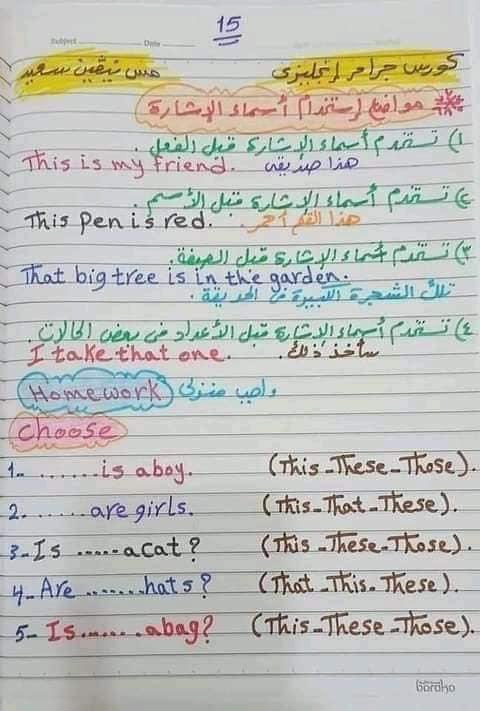 15
Subject Date
كورس جرامر إنجليزى مس نيڤين سعيد
مواضع إستخدام أسماء الإشارة
١) تستخدم أسماء الإشارة قبل الفعل.
This is my friend. هذا صديقى
٢) تستخدم أسماء الإشارة قبل الأسم.
This pen is red. هذا القلم أحمر.
٣) تستخدم أسماء الإشارة قبل الصفة.
That big tree is in the garden.
تلك الشجرة الكبيرة فى الحديقة.
٤) تستخدم أسماء الإشارة قبل الأعداد فى بعض الحالات.
I take that one. سأخذ ذلك.
Homework واجب منزلى
Choose
1- ....... is a boy. (This - These - Those).
2. ...... are girls. (This - That - These).
3- Is ..... a cat? (This - These - Those).
4- Are ....... hats? (That - This - These).
5- Is ....... a bag? (This - These - Those).